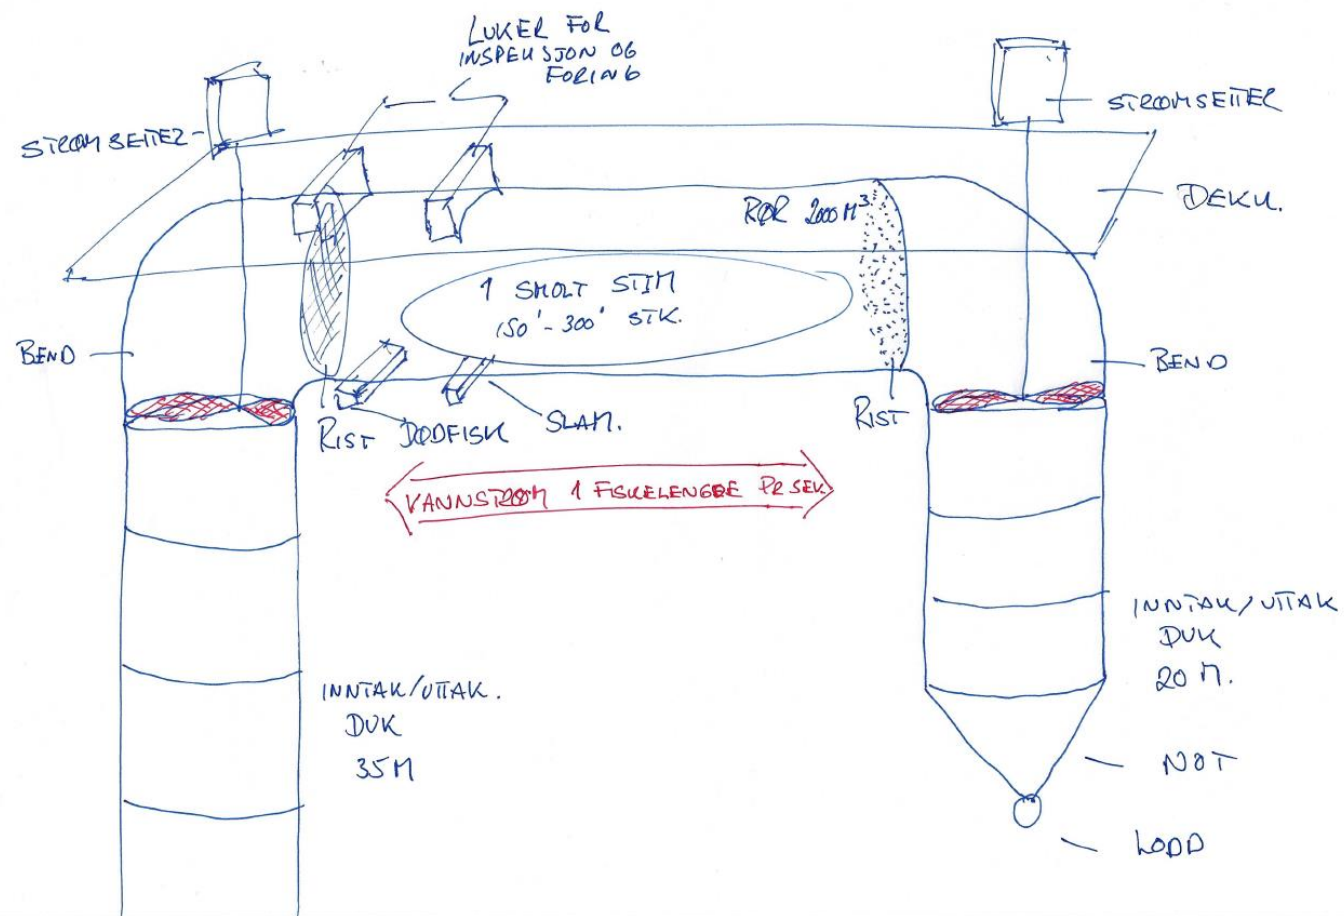 LUKER FOR
INSPEKSJON OG
FORING
STRØMSETTER
STRØMSETTER
DEKK.
RØR 2000 M³
1 SMOLT STIM
150' - 300' STK.
BEND
BEND
RIST
DØDFISK
SLAM.
RIST
VANNSTRØM 1 FISKELENGDE PR SEK.
INNTAK/UTTAK
DUK
20 M.
INNTAK/UTTAK.
DUK
35 M
NOT
LODD